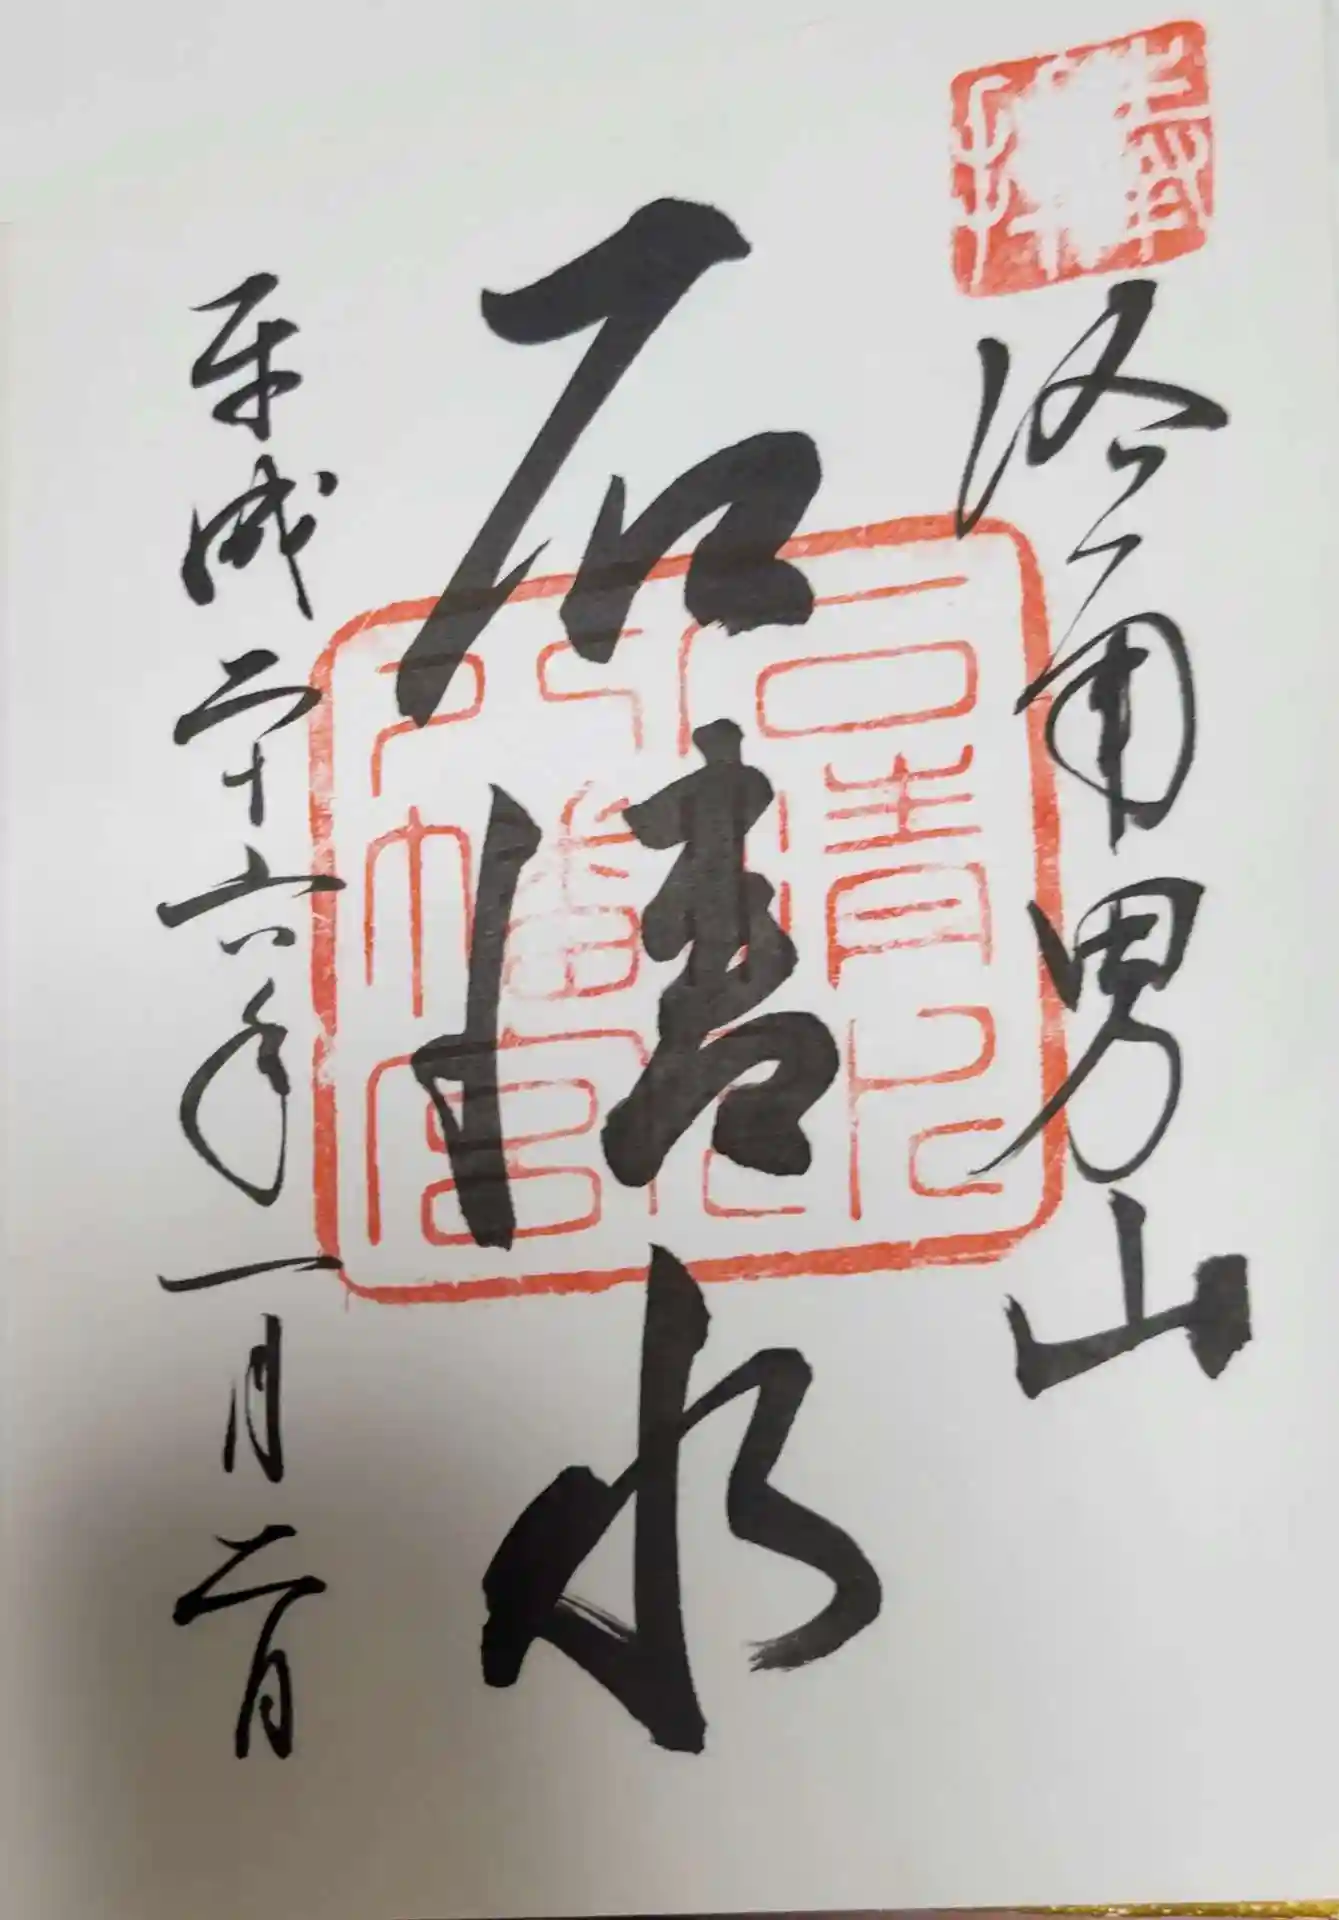 奉拝
洛南男山
石清水
石清水
八幡宮
平成二十六年一月二日